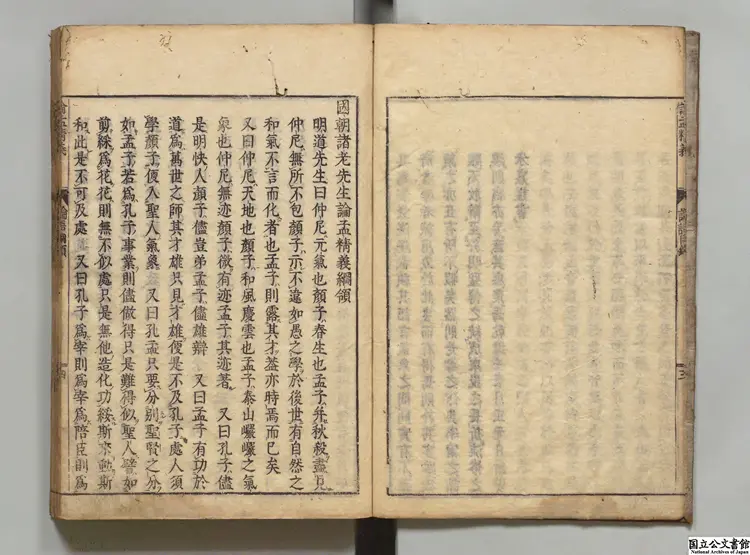 國朝諸老先生論孟精義綱領
明道先生曰仲尼元氣也顏子春生也孟子并秋殺盡見
仲尼無所不包顏子示不違如愚之學於後世有自然之
和氣不言而化者也孟子則露其才葢亦時焉而已矣
又曰仲尼天地也顏子和風慶雲也孟子泰山巖巖之氣
象也仲尼無迹顏子微有迹孟子其迹著　又曰孔子儘
是明快人顏子儘豈弟孟子儘雄辯　又曰孟子有功於
道爲萬世之師其才雄只見才雄便是不及孔子處人須
學顏子便入聖人氣象　又曰孔孟只要分別聖賢之分
如孟子若爲孔子事業則儘做得只是難得似聖人譬如
剪綵爲花花則無不似處只是無他造化功綏斯來動斯
和此是不可及處　又曰孔子爲宰則爲宰爲陪臣則爲
国立公文書館
National Archives of Japan